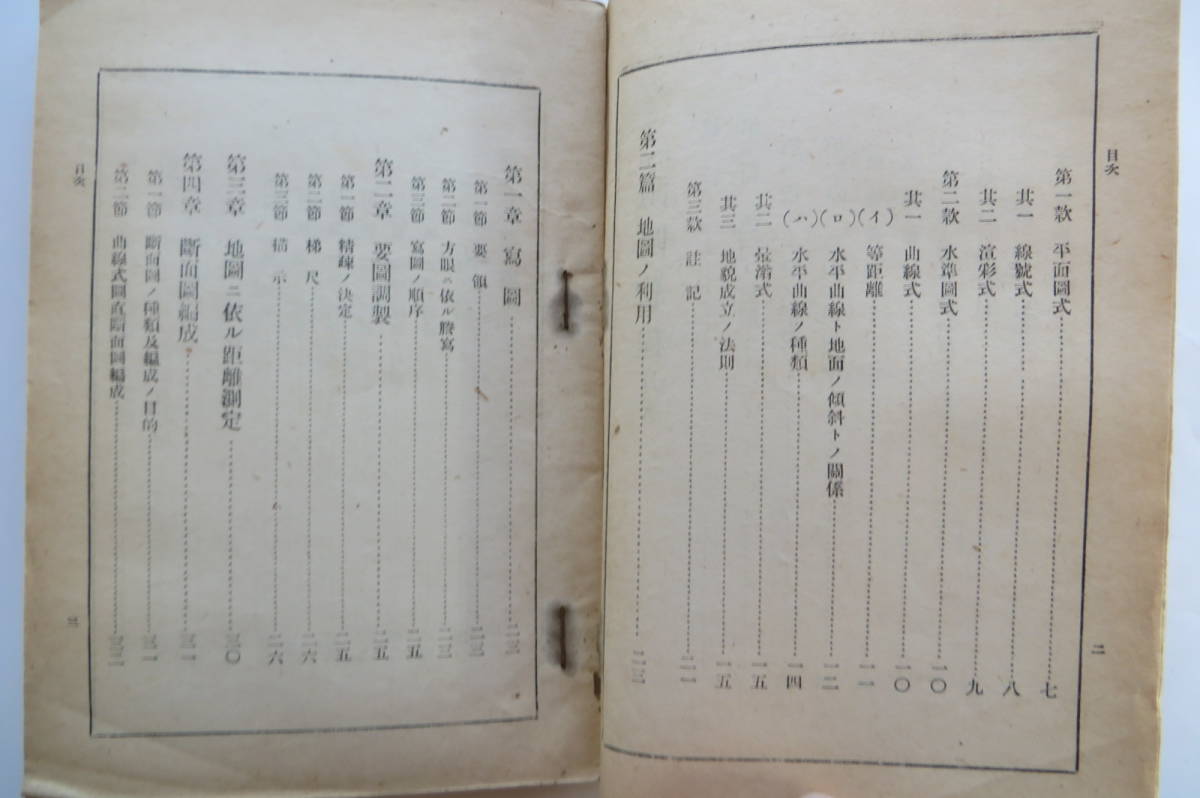 目次
第一款 平面圖式……七
其一 線號式……八
其二 渲彩式……九
第二款 水準圖式……一〇
其一 曲線式……一〇
(イ) 等距離……一一
(ロ) 水平曲線ト地面ノ傾斜トノ關係……一二
(ハ) 水平曲線ノ種類……一四
其二 暈滃式……一五
其三 地貌成立ノ法則……一五
第三款 註記……二一
第二篇 地圖ノ利用……二三
二
第一章 寫圖……二三
第一節 要領……二三
第二節 方眼ニ依ル謄寫……二三
第三節 寫圖ノ順序……二五
第二章 要圖調製……二五
第一節 精疎ノ決定……二五
第二節 梯尺……二六
第三節 描示……二六
第三章 地圖ニ依ル距離測定……三〇
第四章 斷面圖編成……三一
第一節 斷面圖ノ種類及編成ノ目的……三一
第二節 曲線式圖直斷面圖編成……三二
目次
三